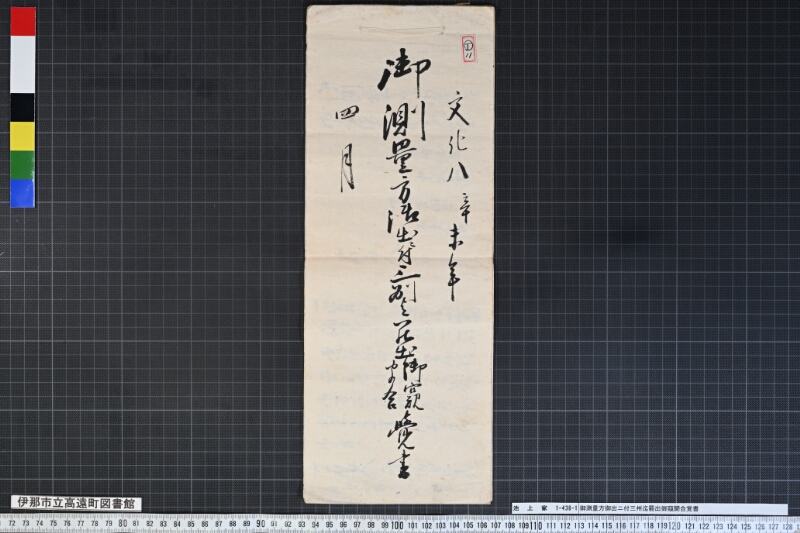 文化八辛未年
御測量方御出ニ付三州迄罷出御窺聞合覚書
四月
伊那市立高遠町図書館
池上家 1-436-1 御測量方御出ニ付三州迄罷出御窺聞合覚書
72 73 74 75 76 77 78 79 80 81 82 83 84 85 86 87 88 89 90 91 92 93 94 95 96 97 98 99 100 101 102 103 104 105 106 107 108 109 110 111 112 113 114 115 116 117 118 119 120 121 122 123 124 125 126 127 128